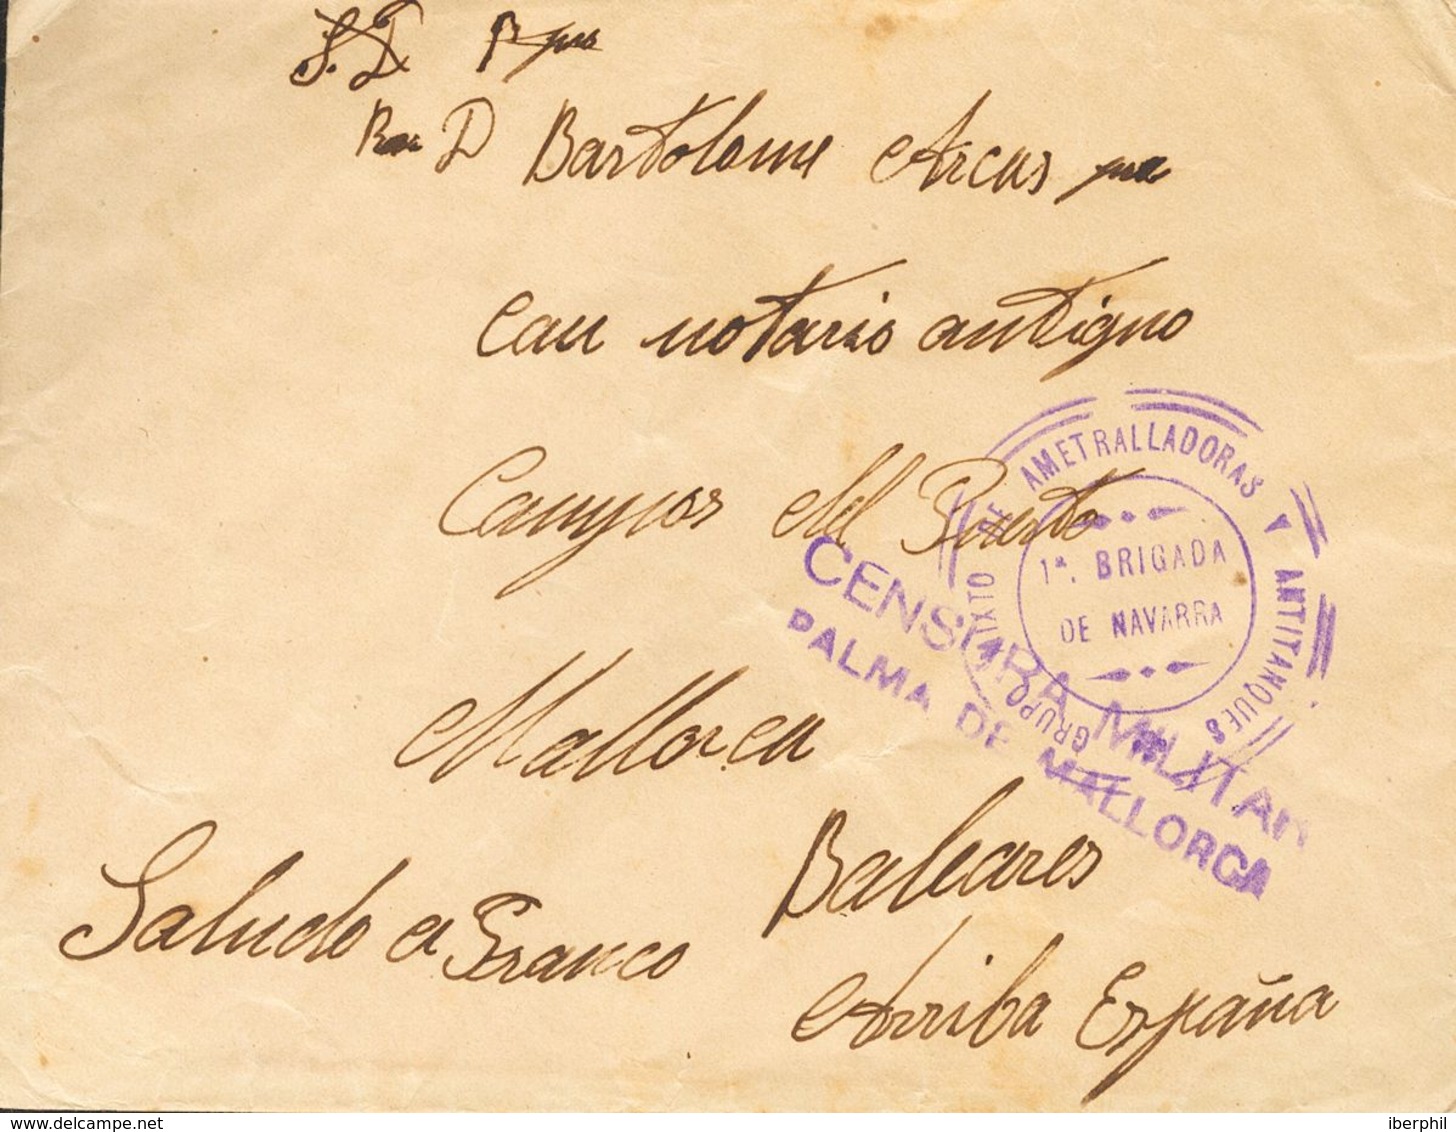 S. D.
D Bartolome Arcas
can notario antiguo
Campos del Puerto
Mallorca
Baleares
Saludo a Franco
Arriba España
GRUPO MIXTO DE AMETRALLADORAS Y ANTITANQUES
1ª. BRIGADA
DE NAVARRA
CENSURA MILITAR
PALMA DE MALLORCA
delcampe.net
iberphil